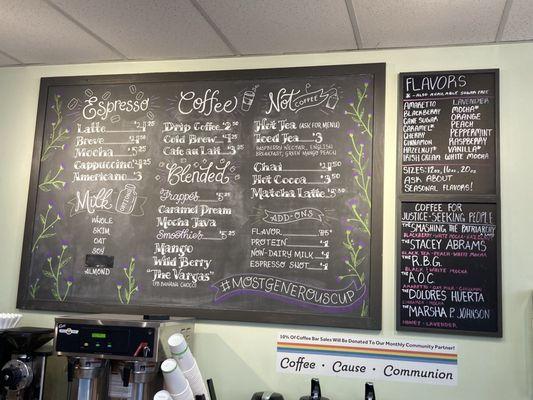 Espresso
Latte
Breve
Mocha
Cappuccino
Americano
Milk
WHOLE
SKIM
OAT
SOY
ALMOND
Coffee
Drip Coffee
Cold Brew
Cafe au Lait
Blended
Frappes
Caramel Dream
Mocha Java
Smoothies
Mango
Wild Berry
"The Vargas"
(PB BANANA CHOCO)
Not COFFEE
Hot Tea (ASK FOR MENU)
Iced Tea $3
Chai
Hot Cocoa
Matcha Latte
ADD-ONS
FLAVOR
PROTEIN
NON-DAIRY MILK
ESPRESSO SHOT
#MOSTGENEROUSCUP
FLAVORS
* - ALSO AVAILABLE SUGAR FREE
AMARETTO
BLACKBERRY
CANE SUGAR
CARAMEL*
CHERRY
CINNAMON
HAZELNUT*
IRISH CREAM
LAVENDER
MOCHA*
ORANGE
PEACH
PEPPERMINT
RASPBERRY
VANILLA*
WHITE MOCHA
SIZES: 12oz, 16oz, 20oz
ASK ABOUT
SEASONAL FLAVORS!
COFFEE FOR
JUSTICE-SEEKING PEOPLE
THE SMASHING THE PATRIARCHY
BLACKBERRY - WHITE MOCHA
THE STACEY ABRAMS
BLACK TEA - PEACH
THE R.B.G.
BLACK & WHITE MOCHA
THE A.O.C.
THE DOLORES HUERTA
CINNAMON - MOCHA
THE MARSHA P. JOHNSON
HONEY - LAVENDER
10% Of Coffee Bar Sales will be Donated to our Monthly Community Partner!
Coffee · Cause · Communion